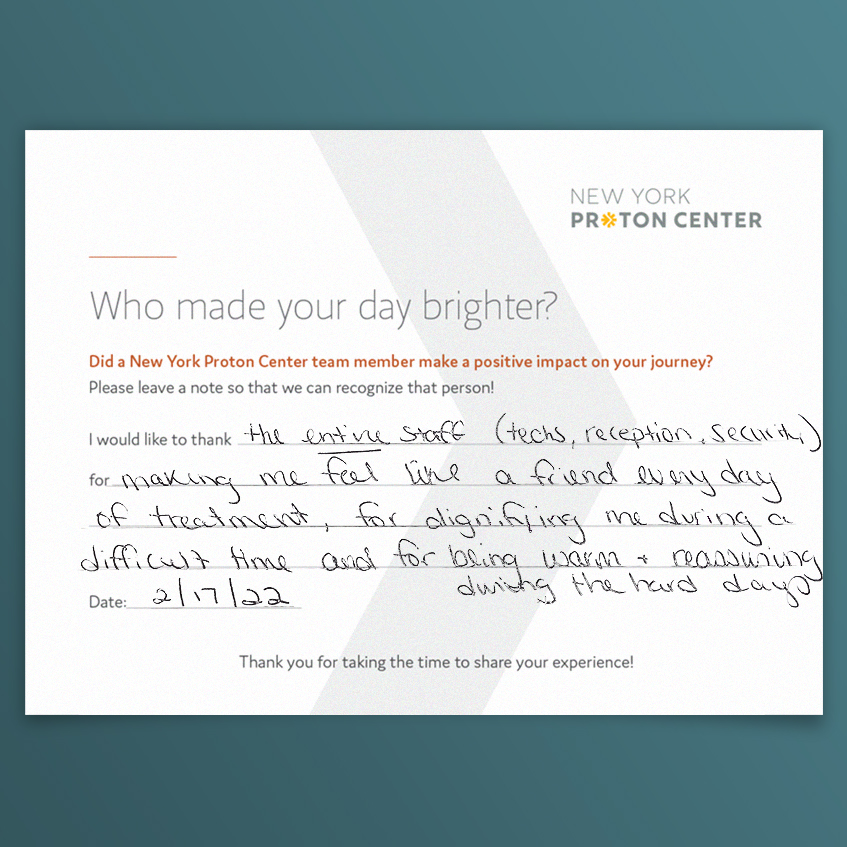 NEW YORK
PROTON CENTER
Who made your day brighter?
Did a New York Proton Center team member make a positive impact on your journey?
Please leave a note so that we can recognize that person!
I would like to thank the entire staff (techs, reception, security)
for making me feel like a friend every day
of treatment, for dignifying me during a
difficult time and for being warm + reassuring
during the hard days
Date: 2/17/22
Thank you for taking the time to share your experience!